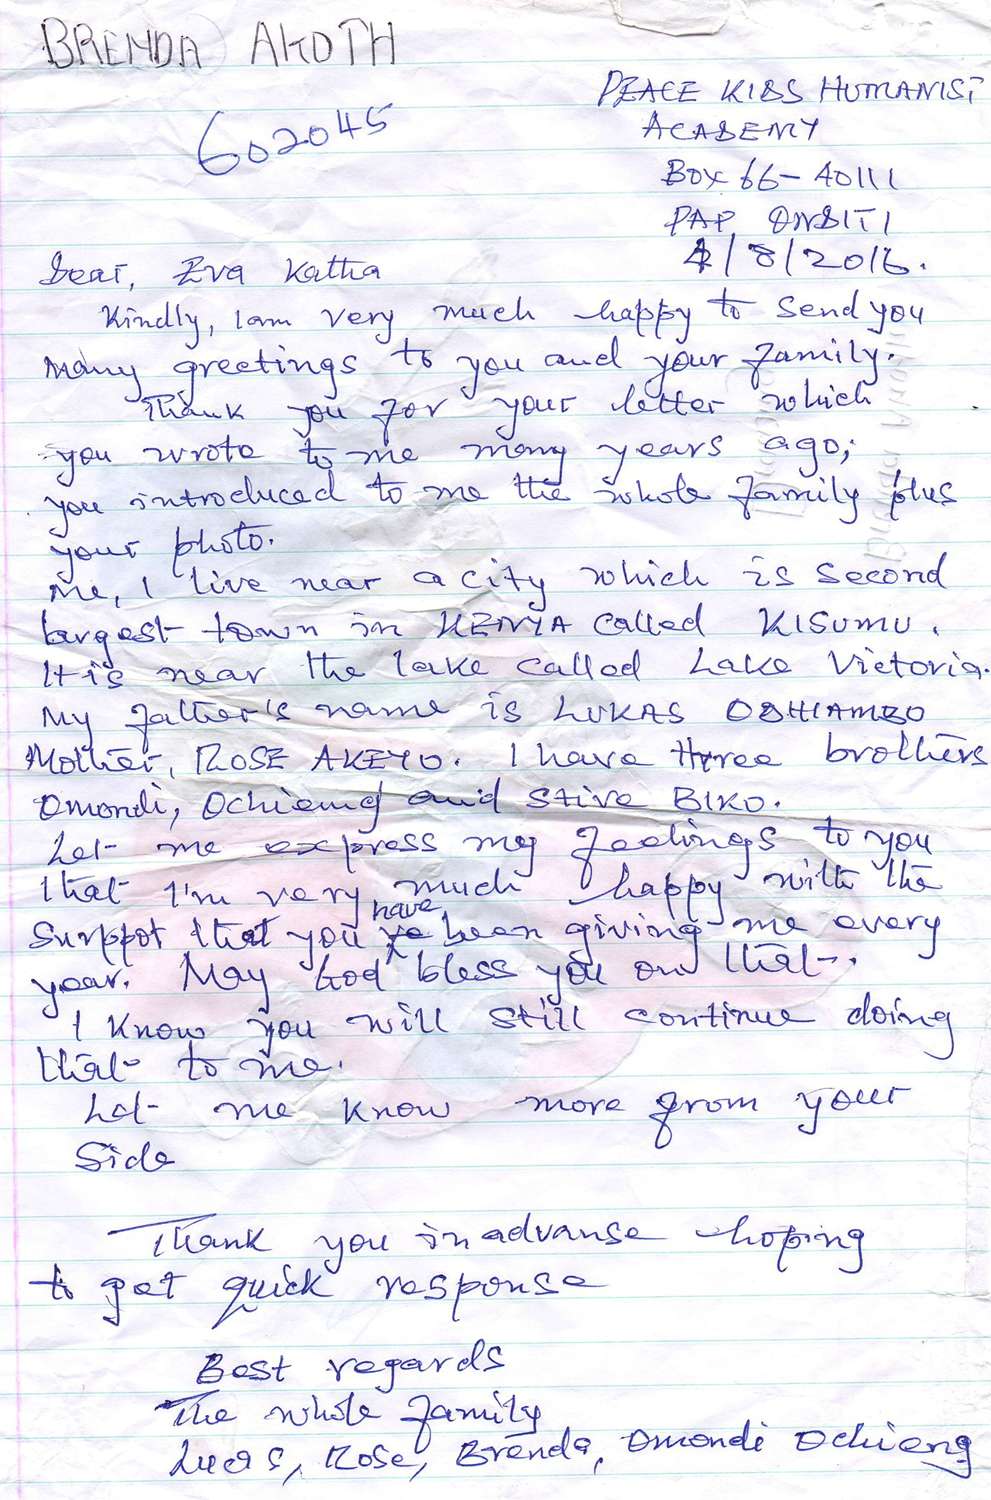 BRENDA AKOTH
602045
PEACE KIDS HUMANIST
ACADEMY
BOX 66-40111
PAP ONDITI
4/8/2016.
Dear, Eva Katha
Kindly, I am very much happy to send you
many greetings to you and your family.
Thank you for your letter which
you wrote to me many years ago;
you introduced to me the whole family plus
your photo.
Me, I live near a city which is second
largest town in KENYA called KISUMU.
It is near the lake called Lake Victoria.
My father's name is LUKAS ODHIAMBO
Mother, ROSE AKEYO. I have three brothers
Omondi, Ochieng and Stive BIKO.
Let me express my feelings to you
that I'm very much happy with the
surppot that you have been giving me every
year. May God bless you on that.
I know you will still continue doing
that to me.
Let me know more from your
side
Thank you in advanse hoping
to get quick response
Best regards
The whole family
Lucas, Rose, Brenda, Omondi Ochieng